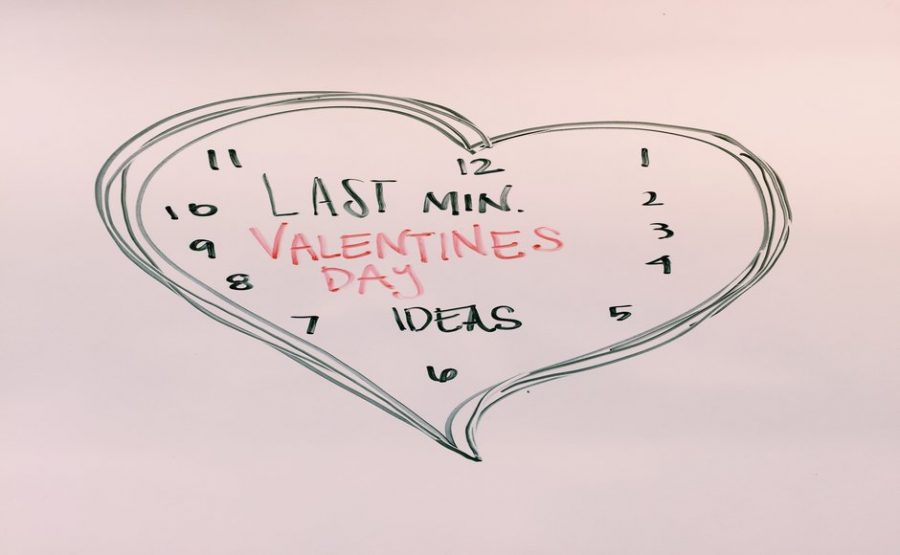 11 12 1
LAST MIN.
10 2
VALENTINES
9 3
DAY
8 4
IDEAS
7 5
6